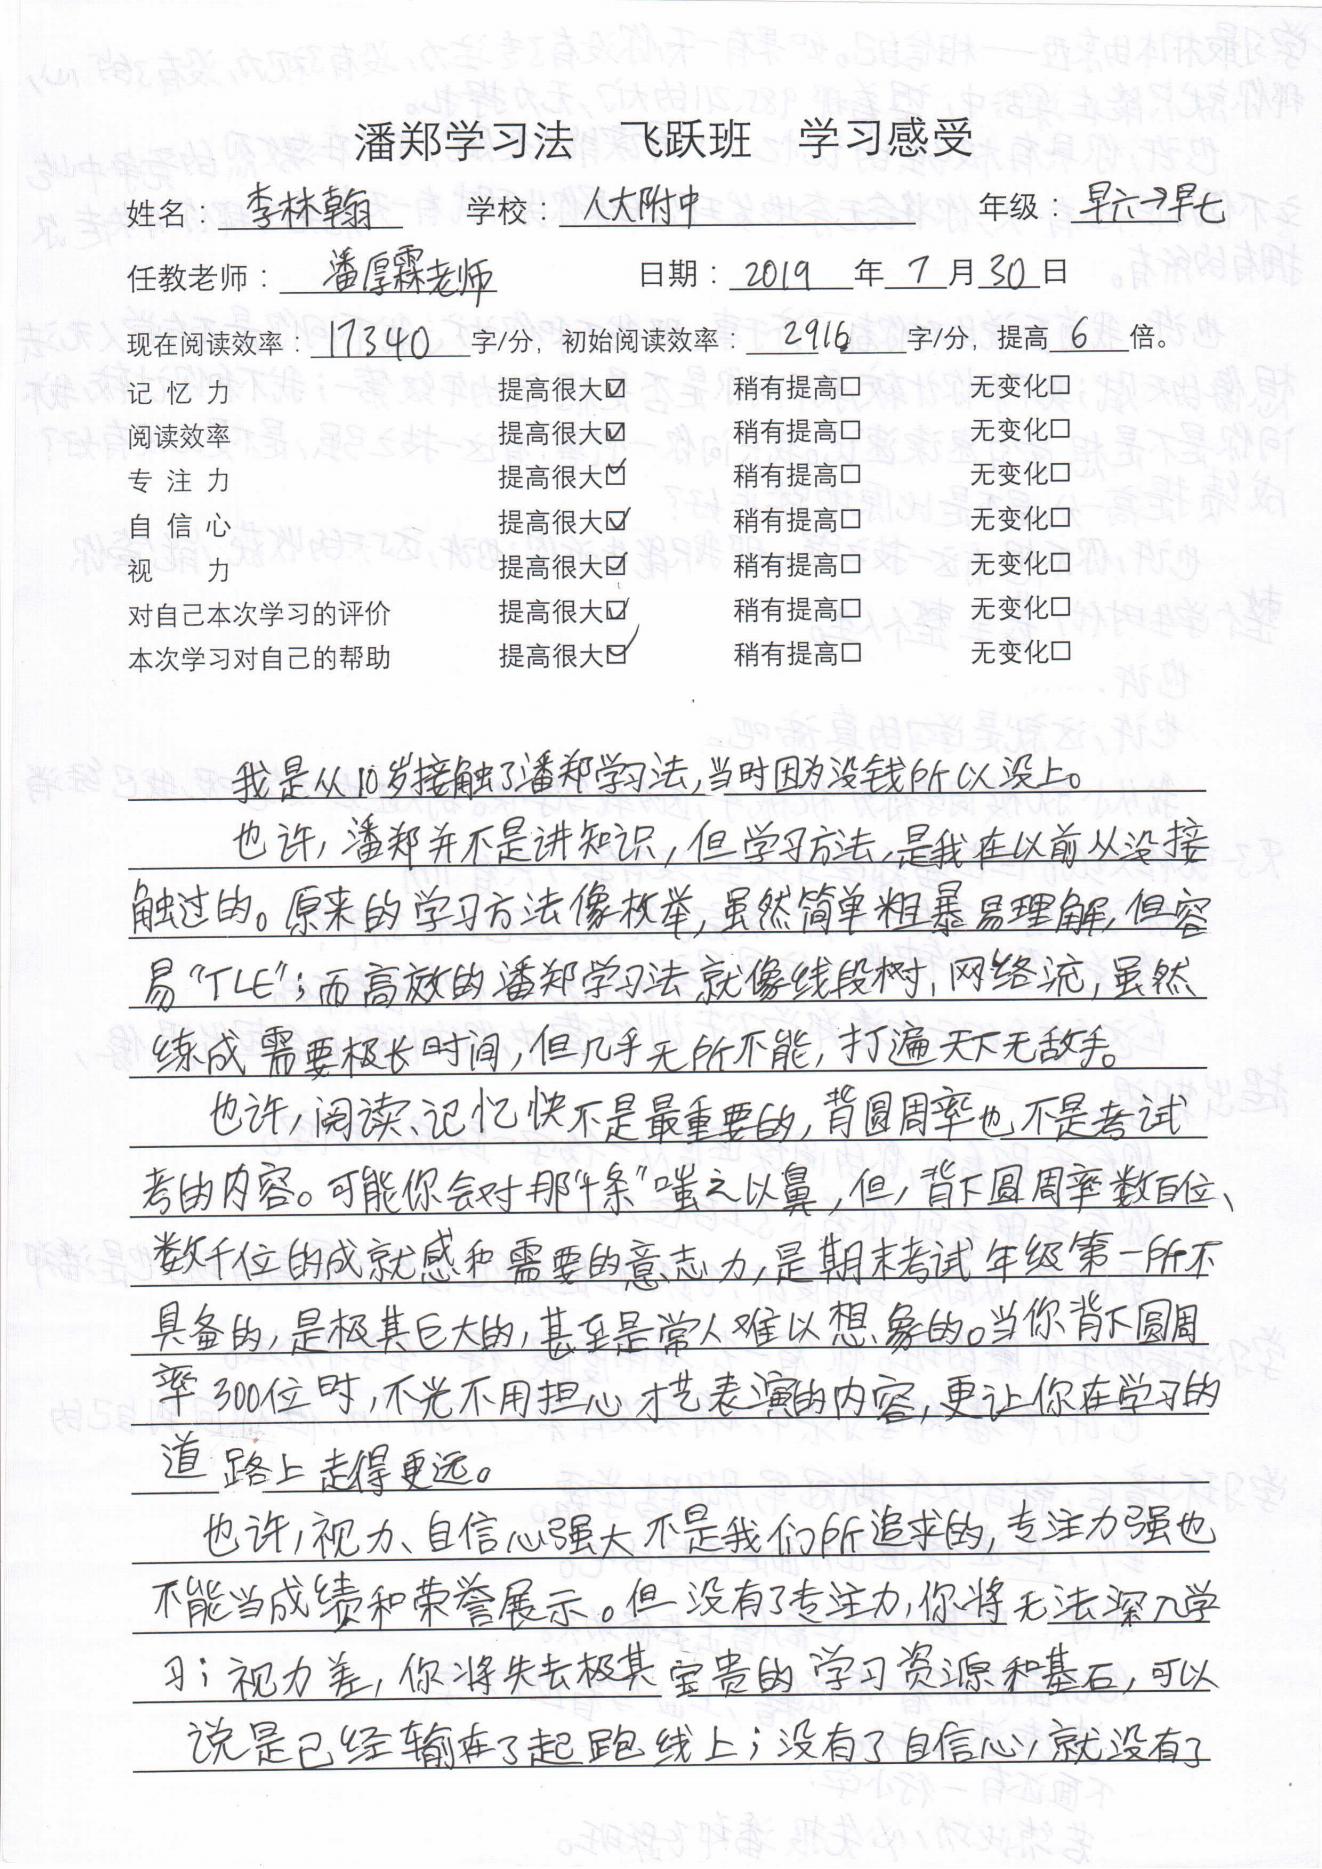 潘郑学习法 飞跃班 学习感受
姓名：李林翰 学校：人大附中 年级：早六→早七
任教老师：潘厚霖老师 日期：2019年7月30日
现在阅读效率：17340字/分，初始阅读效率：2916字/分，提高6倍。
记忆力 提高很大☑ 稍有提高☐ 无变化☐
阅读效率 提高很大☑ 稍有提高☐ 无变化☐
专注力 提高很大☑ 稍有提高☐ 无变化☐
自信心 提高很大☑ 稍有提高☐ 无变化☐
视力 提高很大☑ 稍有提高☐ 无变化☐
对自己本次学习的评价 提高很大☑ 稍有提高☐ 无变化☐
本次学习对自己的帮助 提高很大☑ 稍有提高☐ 无变化☐
我是从10岁接触了潘郑学习法，当时因为没钱所以没上。
也许，潘郑并不是讲知识，但学习方法，是我在以前从没接
触过的。原来的学习方法像枚举，虽然简单粗暴易理解，但容
易“TLE”；而高效的潘郑学习法就像线段树，网络流，虽然
练成需要极长时间，但几乎无所不能，打遍天下无敌手。
也许，阅读、记忆快不是最重要的，背圆周率也不是考试
考的内容。可能你会对那“条”嗤之以鼻，但，背下圆周率数百位、
数千位的成就感和需要的意志力是期末考试年级第一所不
具备的，是极其巨大的，甚至是常人难以想象的。当你背下圆周
率300位时，不光不用担心才艺表演的内容，更让你在学习的
道路上走得更远。
也许，视力、自信心强大不是我们所追求的，专注力强也
不能当成绩和荣誉展示。但没有了专注力，你将无法深入学
习；视力差，你将失去极其宝贵的学习资源和基石，可以
说是已经输在了起跑线上；没有了自信心，就没有了